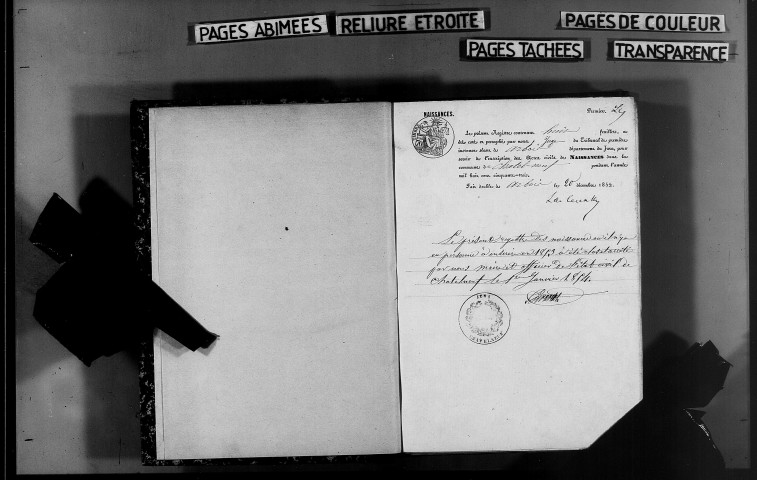 PAGES ABIMEES RELIURE ETROITE PAGES DE COULEUR
PAGES TACHEES TRANSPARENCE
NAISSANCES.
Premier.
Le présent Registre contenant huit feuillets, a
été coté et paraphé par nous Juge du Tribunal de première
instance séant à Arbois département du Jura, pour
servir à l'inscription des Actes civils de NAISSANCES dans la
commune de Chatelneuf pendant l'année
mil huit cent cinquante-trois.
Fait double à Arbois le 20 décembre 1852.
Le présent registre des naissances
en 1853 a été clos et arrêté
par nous maire et officier de l'état civil de
Chatelneuf le 1er Janvier 1854.
JURA